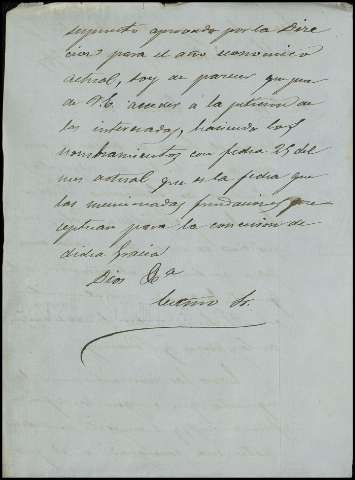 supuesto aprovado por la Dire
cion para el año economico
actual, soy de parecer que pue
de V.E. acceder á la peticion de
los interesados, haciendo los
nombramientos con fecha 25 del
mes actual que es la fecha que
las mencionadas fundaciones pre
ceptuan para la concesion de
dicha gracia
Dios &a